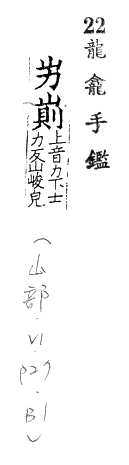 22龍龕手鑑
屴崱上音力下士
力反山峻皃
(山部.VI.p27.B1)